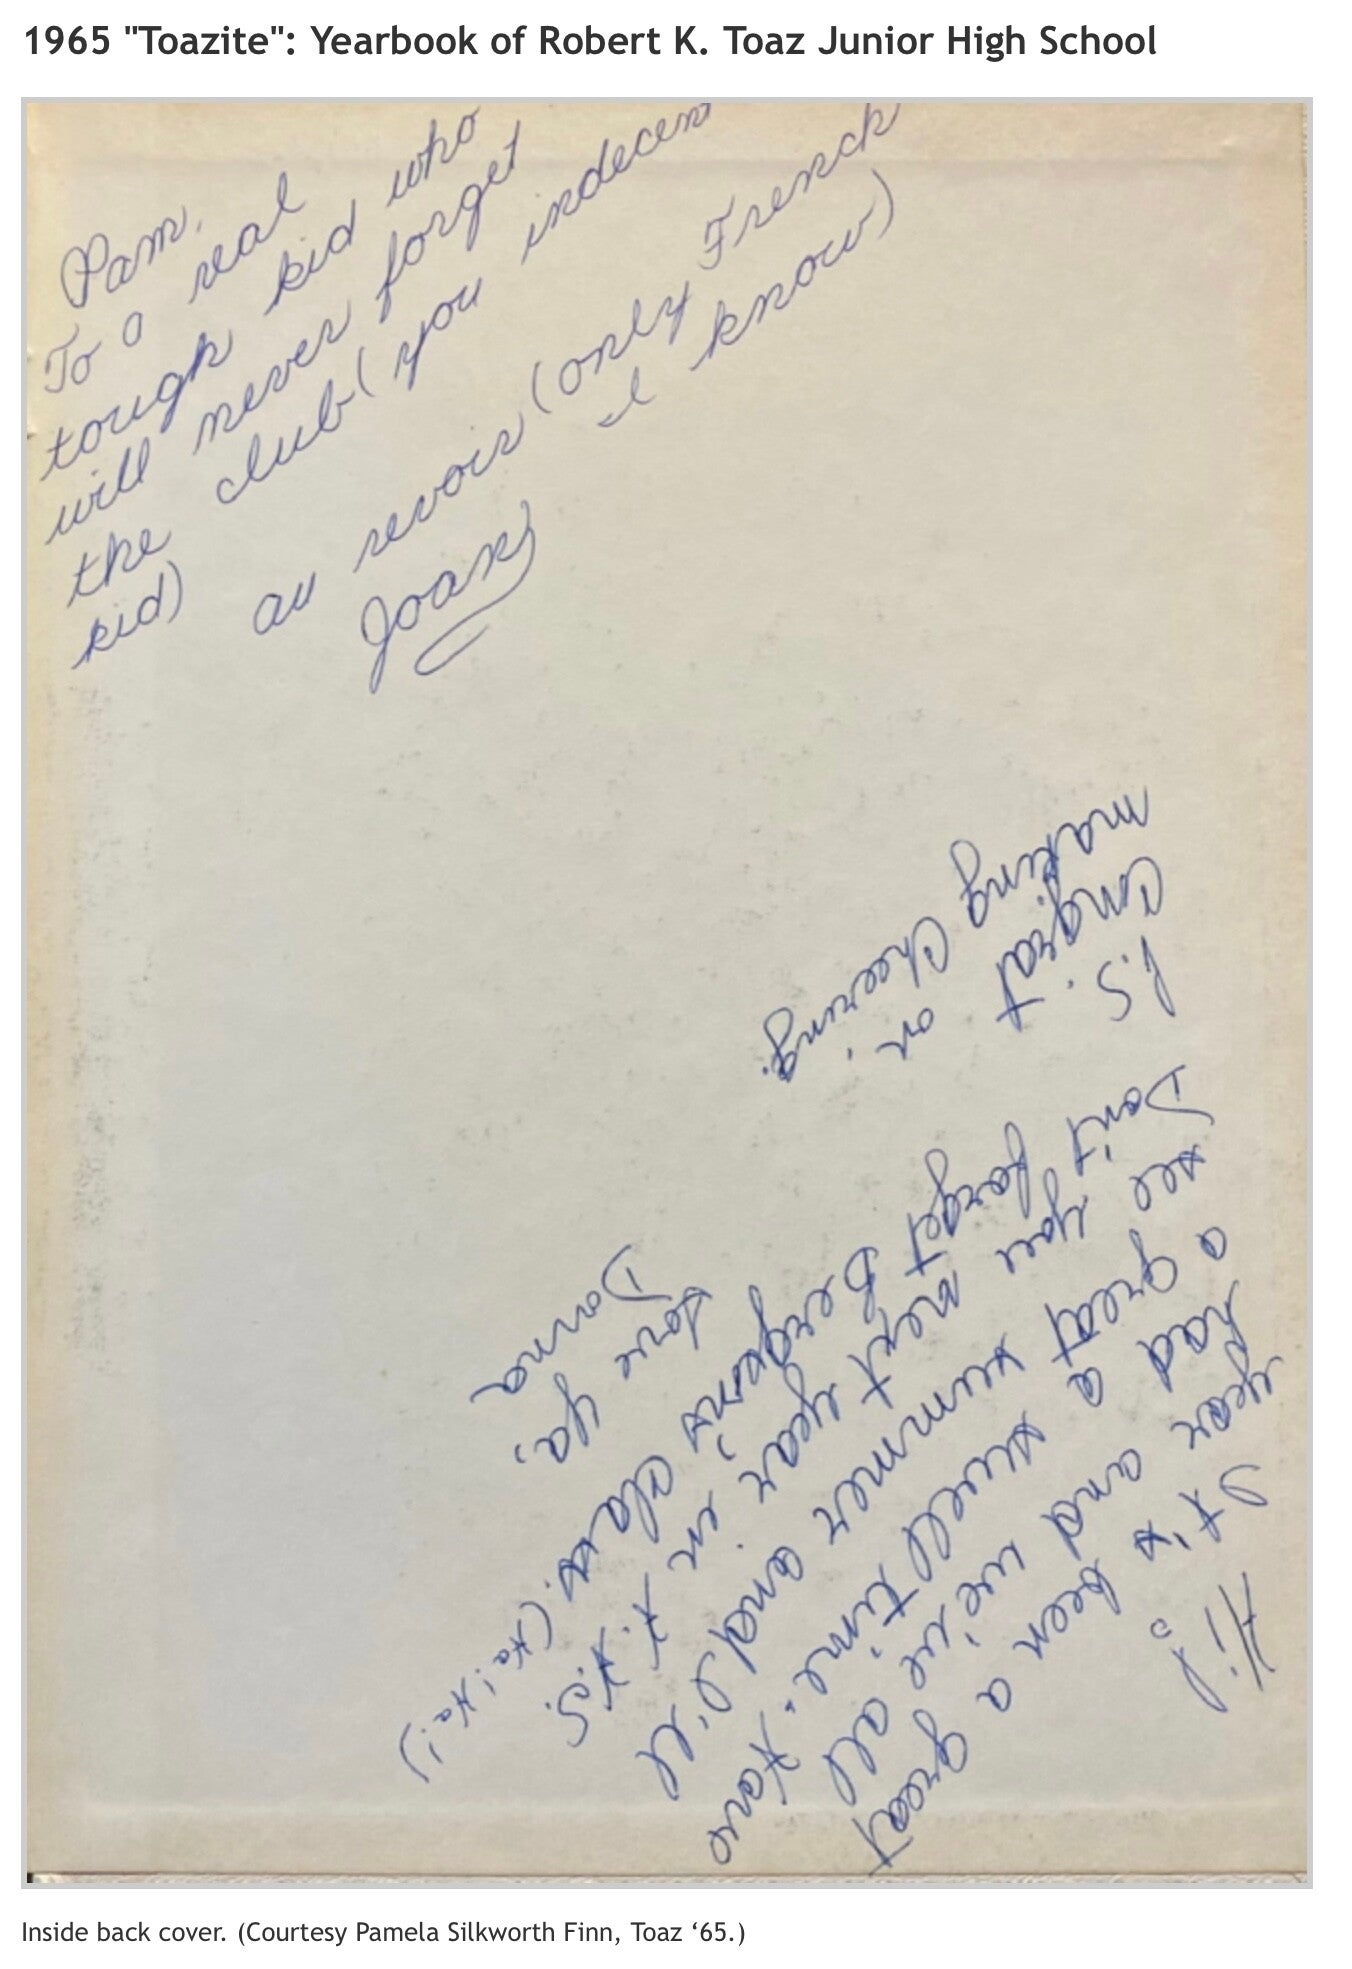 1965 "Toazite": Yearbook of Robert K. Toaz Junior High School
Pam,
To a real
tough kid who
will never forget
the club (you indecent
kid)
au revoir (only French
I know)
Joan
Hi!
It's been a great
year and we've all
had a swell time. Have
a great summer and I'll
see you next year in H.H.S.
Don't forget class. (Ha! Ha!)
Love ya,
Donna
P.S.
Congrat on
making Cheering.
Inside back cover. (Courtesy Pamela Silkworth Finn, Toaz ‘65.)